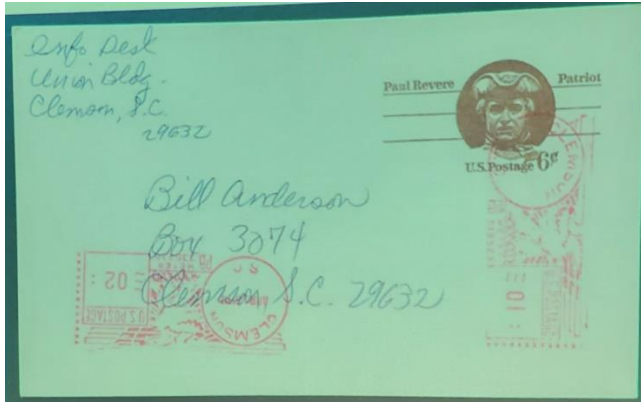 Info Desk
Union Bldg.
Clemson, S.C.
29632
Paul Revere Patriot
U.S. Postage 6¢
Bill Anderson
Box 3074
Clemson S.C. 29632
U.S. POSTAGE
: 02
CLEMSON
CLEMSON
: 01